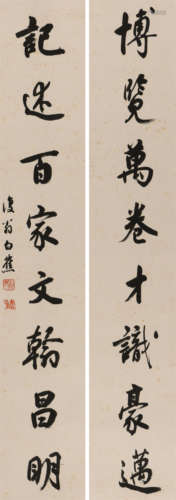 博覽萬卷才識豪邁
記述百家文翰昌明
復翁白蕉